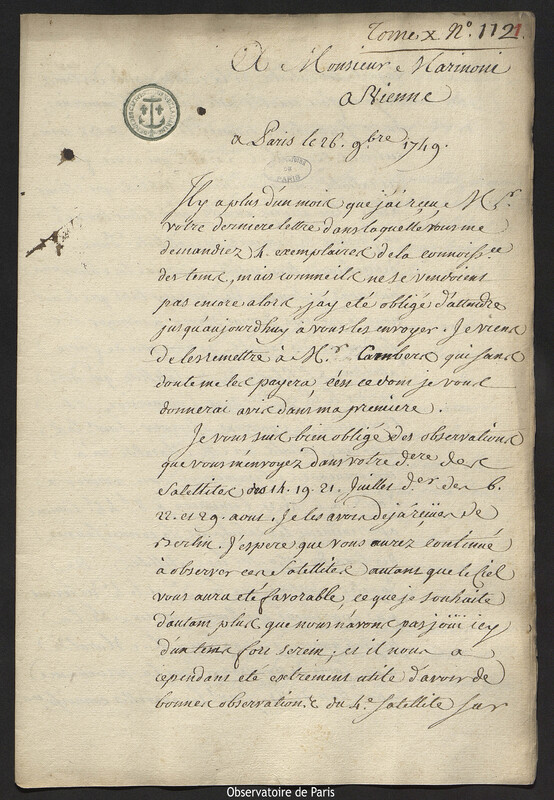 Tome X N°. 1121.
A Monsieur Marinoni
a Vienne
a Paris le 26. 9.bre 1749.
Il y a plus d'un mois que j'ai reçu M.r
votre derniere lettre dans laquelle vous me
demandiez 4. exemplaires de la connoiss.ce
des tems, mais comme ils ne se vendoient
pas encore alors, j'ay eté obligé d'attendre
jusqu'aujourd'huy à vous les envoyer. Je viens
de les remettre à M.r Cambers qui sans
doute me les payera, c'est ce dont je vous
donnerai avis dans ma premiere.
Je vous suis bien obligé des observations
que vous m'envoyez dans votre d.ere des
Satellites des 14. 19. 21. Juillet d.er des 6.
22. et 29. aout. Je les avois deja reçues de
Berlin. J'espere que vous aurez continué
à observer ces Satellites autant que le Ciel
vous aura eté favorable, ce que je souhaite
d'autant plus que nous n'avons pas joüi icy
d'un tems fort serein; et il nous a
cependant eté extremement utile d'avoir de
bonnes observation.s du 4.e satellite sur
Observatoire de Paris